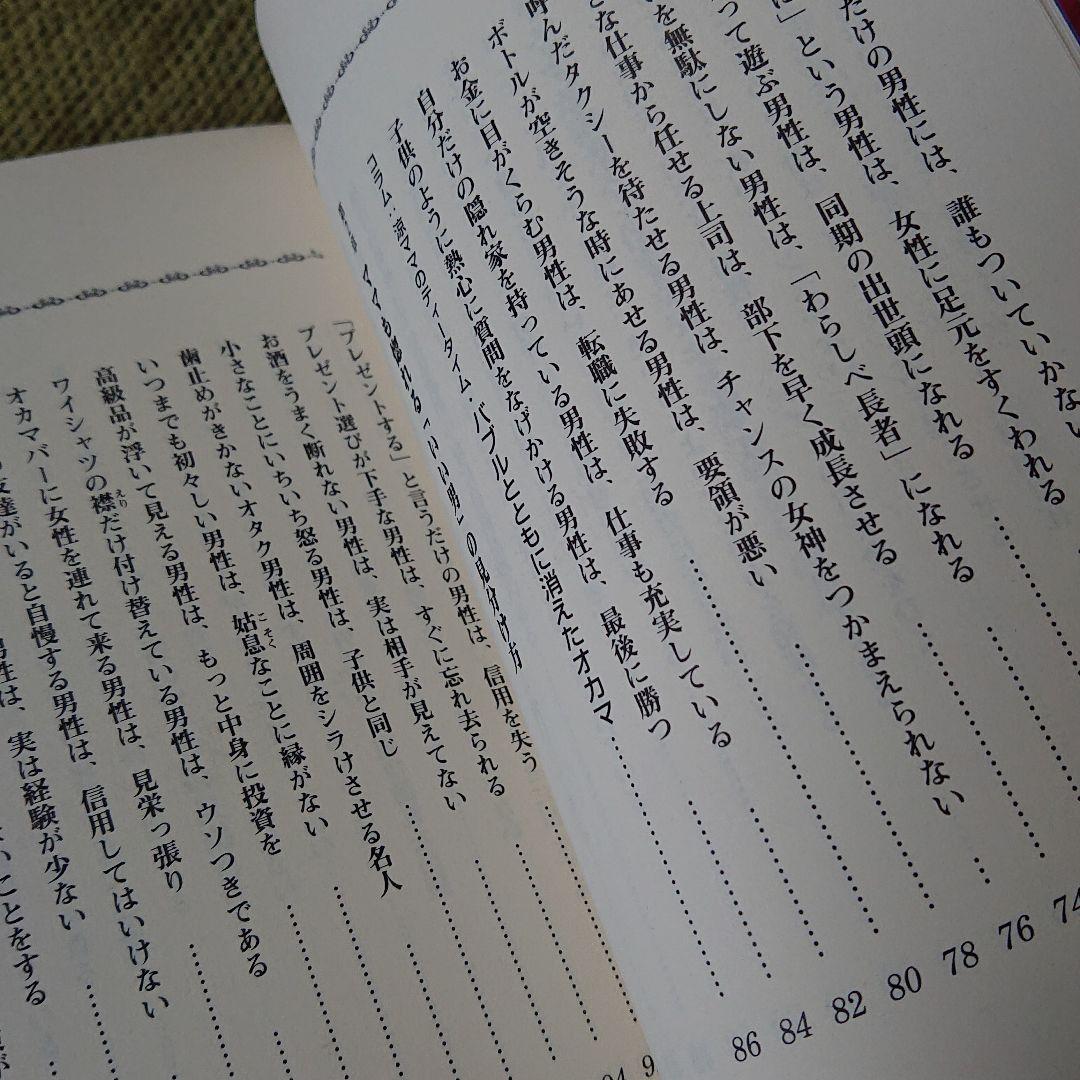 だけの男性には、誰もついていかない
に」という男性は、女性に足元をすくわれる
って遊ぶ男性は、同期の出世頭になれる
を無駄にしない男性は、「わらしべ長者」になれる
な仕事から任せる上司は、部下を早く成長させる
呼んだタクシーを待たせる男性は、チャンスの女神をつかまえられない
ボトルが空きそうな時にあせる男性は、要領が悪い
お金に目がくらむ男性は、転職に失敗する
自分だけの隠れ家を持っている男性は、仕事も充実している
子供のように熱心に質問をなげかける男性は、最後に勝つ
コラム:涼ママのティータイム・バブルとともに消えたオカマ
74
76
78
80
82
84
86
ママも惚れる「いい男」の見分け方
「プレゼントする」と言うだけの男性は、信用を失う
プレゼント選びが下手な男性は、すぐに忘れ去られる
お酒をうまく断れない男性は、実は相手が見えてない
小さなことにいちいち怒る男性は、子供と同じ
歯止めがきかないオタク男性は、周囲をシラけさせる名人
いつまでも初々しい男性は、姑息なことに縁がない
こそく
高級品が浮いて見える男性は、もっと中身に投資を
ワイシャツの襟だけ付け替えている男性は、ウソつきである
えり
オカマバーに女性を連れて来る男性は、見栄っ張り
友達がいると自慢する男性は、信用してはいけない
男性は、実は経験が少ない
ことをする